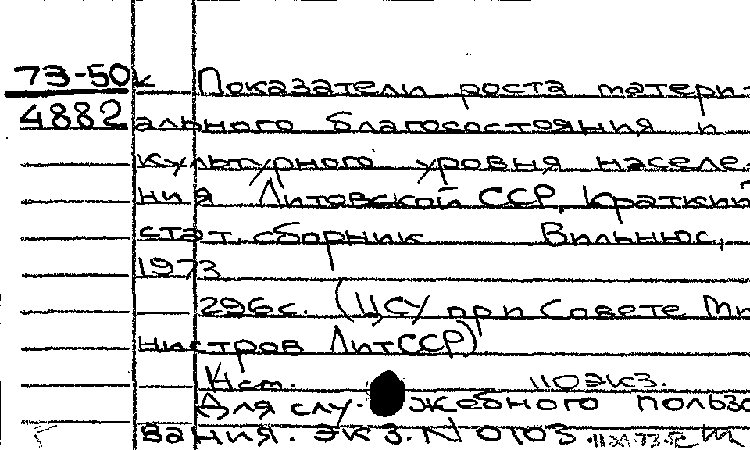 73-50к Показатели роста матери-
4882 ального благосостояния и
культурного уровня населе-
ния Литовской ССР. Краткий
стат. сборник Вильнюс,
1973
296 с. (ЦСУ при Совете Ми-
нистров ЛитССР)
110 экз.
Для служебного пользо-
вания. экз. N 0103